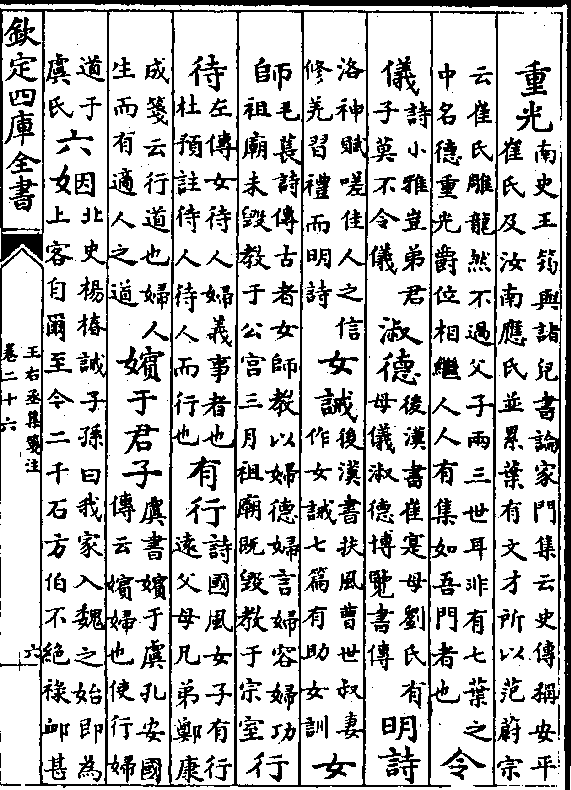 重光南史王筠與諸兒書論家門集云史傳稱安平
崔氏及汝南應氏並累葉有文才所以范蔚宗
云崔氏雕龍然不過父子兩三世耳非有七葉之
中名德重光爵位相繼人人有集如吾門者也令
儀詩小雅豈弟君
子莫不令儀
淑德後漢書崔寔母劉氏有
母儀淑德博覽書傳明詩
洛神賦嗟佳人之信
修羌習禮而明詩
女誡後漢書扶風曹世叔妻
作女誡七篇有助女訓女
師毛萇詩傳古者女師教以婦德婦言婦容婦功
祖廟未毀教于公宮三月祖廟既毀教于宗室行
待左傳女待人婦義事者也
杜預註待人待人而行也
有行詩國風女子有行
遠父母兄弟鄭康
成箋云行道也婦人
生而有適人之道
嬪于君子虞書嬪于虞孔安國
傳云嬪婦也使行婦
道于
虞氏
六女因北史楊椿誡子孫曰我家入魏之始即為
上客自爾至今二千石方伯不絕祿卹甚
欽定四庫全書
王右丞集箋注
卷二十六
六